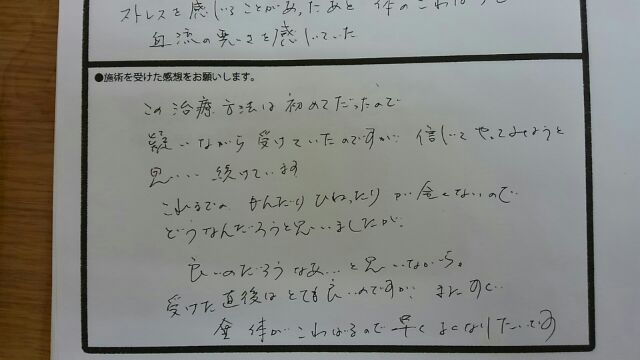 ストレスを感じることがあったあと 体のこわばりと
血流の悪いさを感じていた
●施術を受けた感想をお願いします。
この治療方法は初めてだったので
疑いながら受けていたのですが 信じてやってみようと
思い… 続けています
これまでの かんだり ひねったり が全くないので
どうなんだろうと思いましたが、
良いのだろうなあ…と思いながら。
受けた直後はとても良いのですが またすぐ…
全体がこわばるので早くよくなりたいです